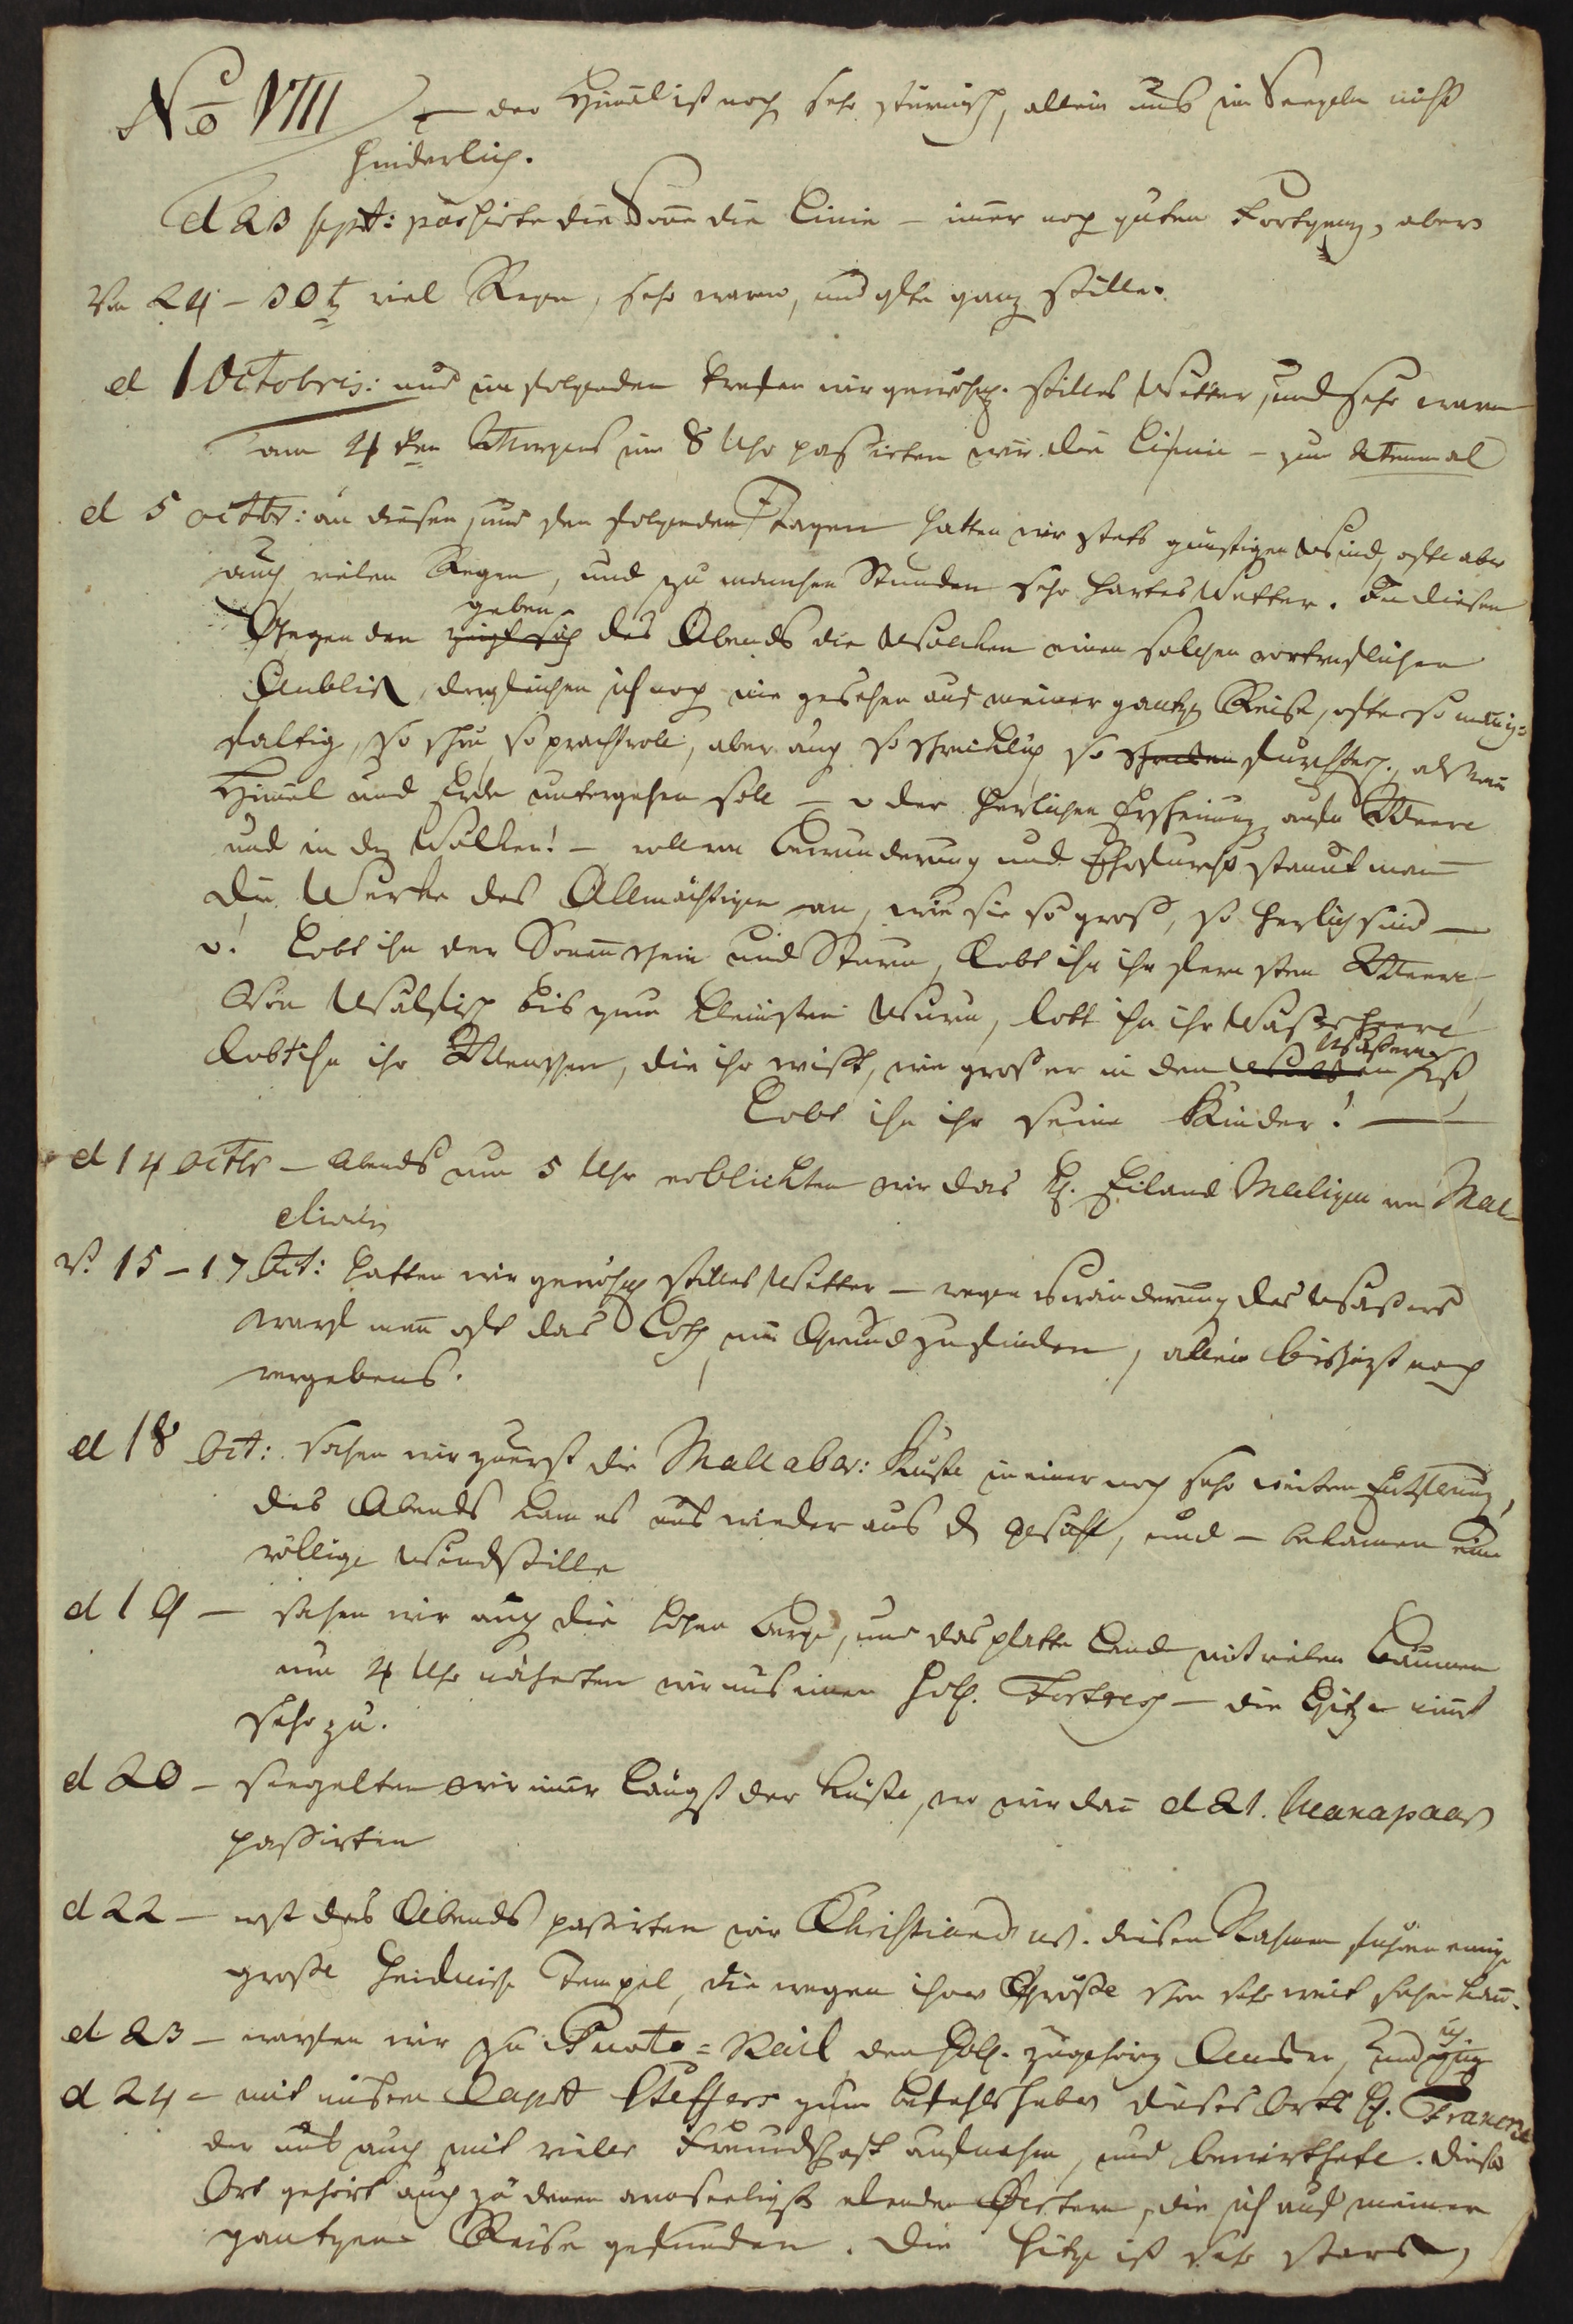 No VIII — der Himel ist noch sehr stürmisch, allein uns im Seegeln nicht
hinderlich.
d 23 sept: passirte die Sone die Linie — imer noch guten Fortgang, aber
Vom 24 – 30t viel Regen, sehr warm, und ofte ganz stille.
d 1 Octobris: und im folgenden trafen wir gewöhnl. stilles Wetter, und sehr warm
am 4 ten Morgens um 8 Uhr passirten wir die Linie — zum 2tenmal
d 5 octbr: an diesen, und den folgenden Tagen hatten wir stets günstigen Wind, ofte aber
auch vielen Regen, und zu manchen Stunden sehr hartes Wetter. In diesen
geben
Gegenden zeigt sich des Abends die Wolcken einen solchen vortreflichen
Anblick, dergleichen ich noch nie gesehen auf meiner gantzen Reise, ofte so manig=
faltig, so schön, so prachtvoll, aber auch so schrecklich, so furchterl., als wen
Himel und Erde untergehen soll — o der herlichen Erscheinung aufm Meere
und in den Wolken! — voller Bewunderung und Ehrfurcht staunt man
die Werke des Allmächtigen an, wie sie so gross, so herlich sind —
o! Lobt ihn der Sonenschein und Sturm, Lobt ihn ihr fernsten Meere
Vom Walfisch bis zum kleinsten Wurm, lobt ihn ihr Wasserheere
Wassern
Lobt ihn ihr Menschen, die ihr wisst, wie gross er in den ist
Lobt ihn ihr seine Kinder! —
d 14 octbr — Abends um 5 Uhr erblickten wir das kl. Eiland Maliqui von Mal=
divin
V. 15 – 17 Oct: hatten wir gewöhnl. stilles Wetter — wegen Veränderung des Wassers
warf man oft das Loth, um Grund zu finden, allein bis jetzt noch
vergebens.
d 18 Oct: sahen wir zuerst die Mallabar: Küste in einer noch sehr weiten Entfernung,
des Abends kam es uns wieder aus dem Gesicht, und — bekamen eine
völlige Windstille
d 19 — sahen wir auch die hohen Berge, und das platte Land mit vielen Bäumen
um 4 Uhr näherten wir uns einer Holl. Fortress — die Hitze nimt
sehr zu.
d 20 — seegelten wir imer längst der Küste, wo wir dan d 21. Manapaar
passirten
d 22 — erst des Abends passirten wir diesen Nahmen führen einige
grosse heidnische Tempel, die wegen ihrer Grösse schon sehr weit sehen kan.
d 23 — warfen wir zu den Holl. zugehörig Ancker, und
ich
d 24 — mit unsern Capit Steffers zum Befehlshaber dieses Orts H.
der uns auch mit vieler Freundschaft aufnahm, und bewirthete. dieser
Ort gehört auch zu denen armseeligst elenden Oertern, die ich auf meiner
gantzen Reise gefunden. Die Hitze ist sehr starck,